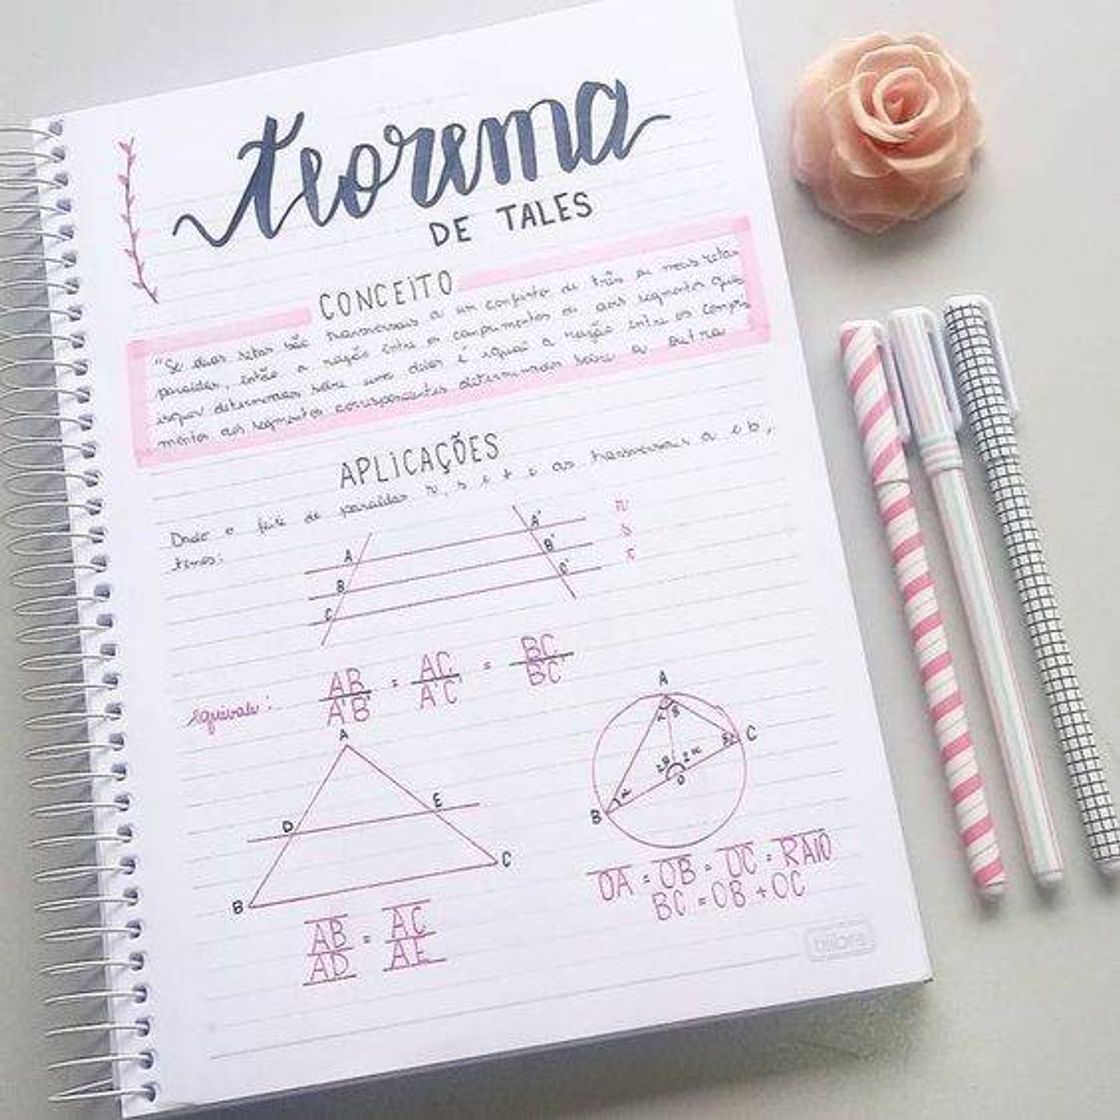 teorema
DE TALES
CONCEITO
"Se duas retas são transversais a um conjunto de três ou mais retas
paralelas, então a razão entre os comprimentos de dois segmentos quais
quer determinados sobre uma delas é igual a razão entre os compri
mentos dos segmentos correspondentes determinados sobre a outra
APLICAÇÕES
Dado o feixe de paralelas r, s e t e as transversais a e b,
temos:
A A' r
B B' s
C C' t
equivale:
AB = AC = BC
A'B A'C BC
A
D E
B C
AB = AC
AD AE
A
α β
β C
2β 2α
O
B α
OA = OB = OC = RAIO
BC = OB + OC
tilibra